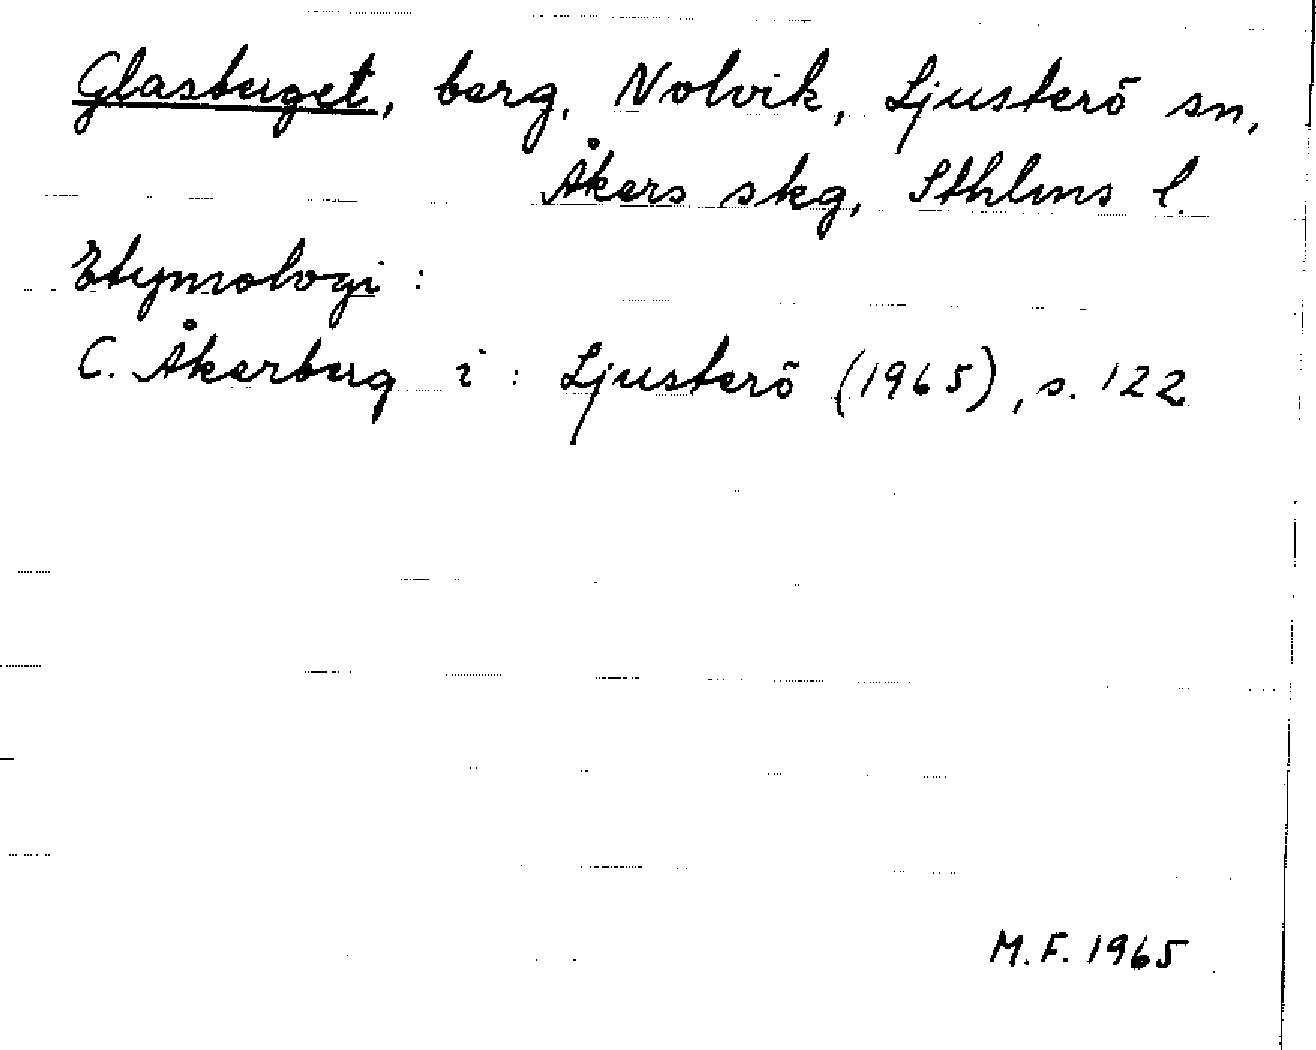 Glasberget, berg, Nolvik, Ljusterö sn,
Åkers skg, Sthlms l.
Etymologi:
C. Åkerberg i: Ljusterö (1965), s. 122
M.F. 1965